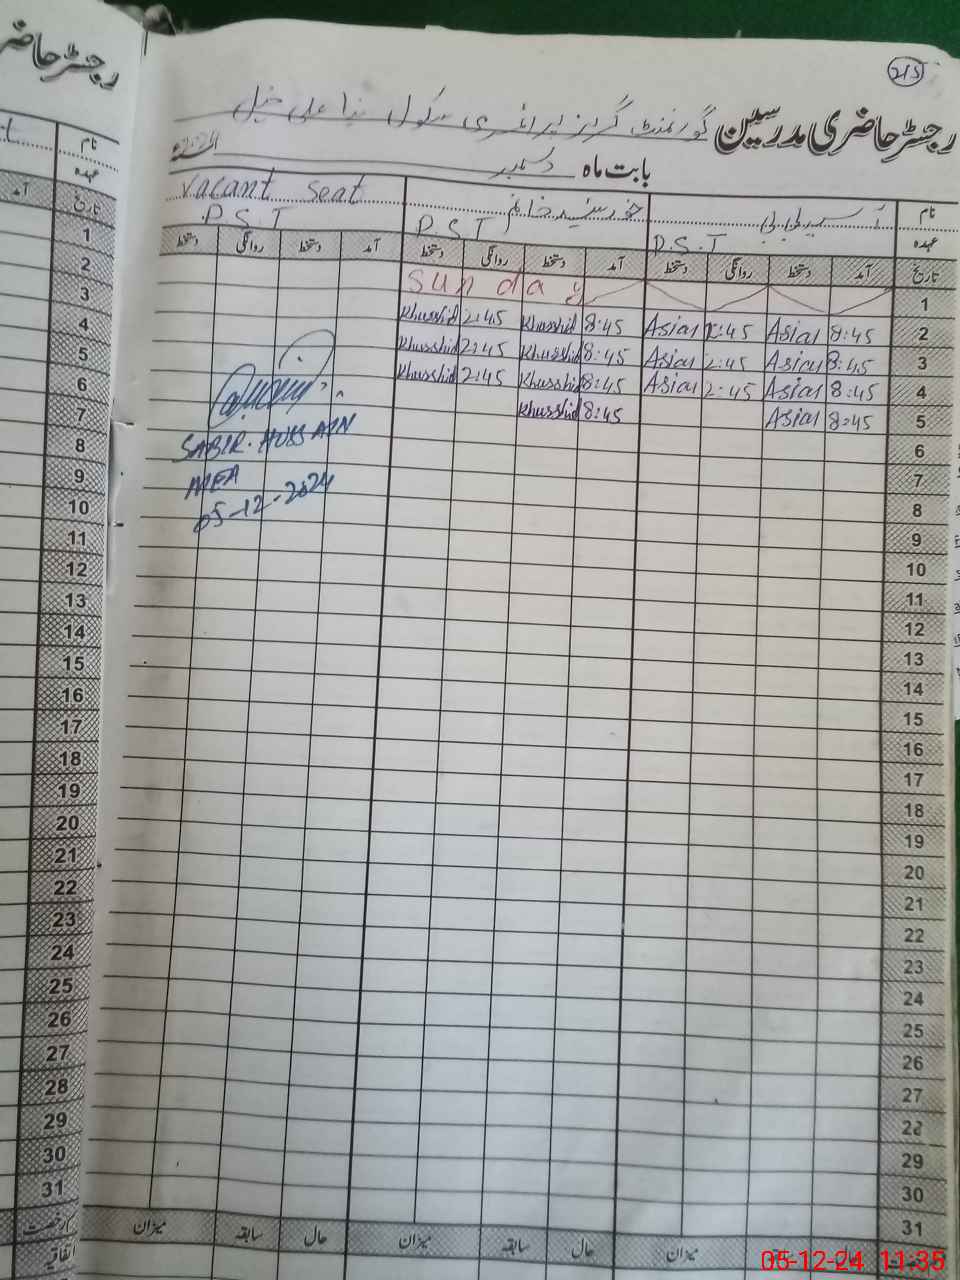 215
رجسٹر حاضری مدرسین گورنمنٹ گرلز پرائمری سکول
بابت ماہ دسمبر 2024ء
نام آسیہ بی بی خورشید خانم Vacant Seat
عہدہ P.S.T P.S.T P.S.T
تاریخ آمد دستخط روانگی دستخط آمد دستخط روانگی دستخط آمد دستخط روانگی دستخط
1 Sunday
2 8:45 Asia 2:45 Asia 8:45 Khurshid 2:45 Khurshid
3 8:45 Asia 2:45 Asia 8:45 Khurshid 2:45 Khurshid
4 8:45 Asia 2:45 Asia 8:45 Khurshid 2:45 Khurshid
5 8:45 Asia 8:45 Khurshid
6
7
8
9
10
11
12
13
14
15
16
17
18
19
20
21
22
23
24
25
26
27
28
29
30
31
میزان حال سابقہ میزان حال سابقہ میزان
SABIR HUSSAIN
MEA
05-12-2024
رجسٹر حاضر
نام
عہدہ
تاریخ
آمد
1
2
3
4
5
6
7
8
9
10
11
12
13
14
15
16
17
18
19
20
21
22
23
24
25
26
27
28
29
30
31
رخصت
اتفاقیہ
05-12-24 11:35